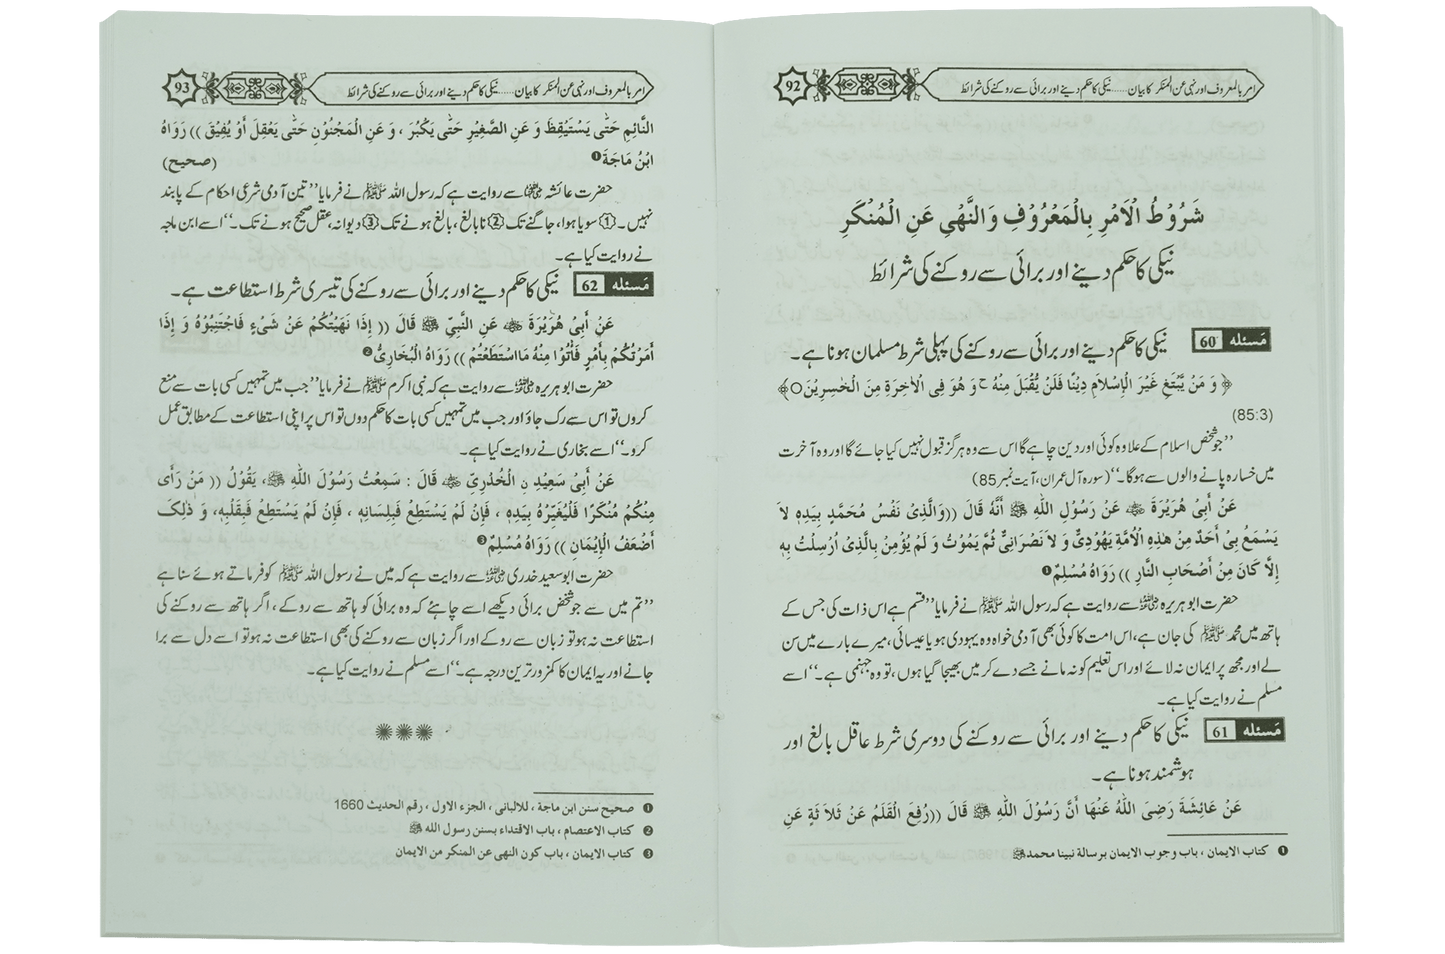 امر بالمعروف اور نہی عن المنکر کا بیان......نیکی کا حکم دینے اور برائی سے روکنے کی شرائط
92
شَرُوْطُ الْاَمْرِ بِالْمَعْرُوْفِ وَالنَّهْيِ عَنِ الْمُنْكَرِ
نیکی کا حکم دینے اور برائی سے روکنے کی شرائط
مَسئلہ 60 نیکی کا حکم دینے اور برائی سے روکنے کی پہلی شرط مسلمان ہونا ہے۔
﴿ وَ مَنْ يَّبْتَغِ غَيْرَ الْاِسْلاَمِ دِيْنًا فَلَنْ يُّقْبَلَ مِنْهُ ج وَ هُوَ فِى الْاٰخِرَةِ مِنَ الْخٰسِرِيْنَ○ ﴾
(85:3)
’’جو شخص اسلام کے علاوہ کوئی اور دین چاہے گا اس سے وہ ہرگز قبول نہیں کیا جائے گا اور وہ آخرت
میں خسارہ پانے والوں سے ہوگا۔‘‘ (سورہ آل عمران، آیت نمبر 85)
عَنْ أَبِىْ هُرَيْرَةَ ؓ عَنْ رَسُوْلِ اللّٰهِ ﷺ أَنَّهُ قَالَ ((وَالَّذِىْ نَفْسُ مُحَمَّدٍ بِيَدِهٖ لاَ
يَسْمَعُ بِىْ أَحَدٌ مِنْ هٰذِهِ الْاُمَّةِ يَهُوْدِىٌّ وَ لاَ نَصْرَانِىٌّ ثُمَّ يَمُوْتُ وَ لَمْ يُؤْمِنْ بِالَّذِىْ اُرْسِلْتُ بِهِ
اِلاَّ كَانَ مِنْ أَصْحَابِ النَّارِ )) رَوَاهُ مُسْلِمٌ❶
حضرت ابوہریرہ ؓ سے روایت ہے کہ رسول اللہ ﷺ نے فرمایا ’’قسم ہے اس ذات کی جس کے
ہاتھ میں محمد ﷺ کی جان ہے، اس امت کا کوئی بھی آدمی خواہ وہ یہودی ہو یا عیسائی، میرے بارے میں سن
لے اور مجھ پر ایمان نہ لائے اور اس تعلیم کو نہ مانے جسے دے کر میں بھیجا گیا ہوں، تو وہ جہنمی ہے۔‘‘ اسے
مسلم نے روایت کیا ہے۔
مَسئلہ 61 نیکی کا حکم دینے اور برائی سے روکنے کی دوسری شرط عاقل بالغ اور
ہوشمند ہونا ہے۔
عَنْ عَائِشَةَ رَضِىَ اللّٰهُ عَنْهَا أَنَّ رَسُوْلَ اللّٰهِ ﷺ قَالَ ((رُفِعَ الْقَلَمُ عَنْ ثَلاَ ثَةٍ عَنِ
❶ كتاب الايمان ، باب وجوب الايمان برسالة نبينا محمد ﷺ
امر بالمعروف اور نہی عن المنکر کا بیان......نیکی کا حکم دینے اور برائی سے روکنے کی شرائط
93
النَّائِمِ حَتّٰى يَسْتَيْقِظَ وَ عَنِ الصَّغِيْرِ حَتّٰى يَكْبُرَ ، وَ عَنِ الْمَجْنُوْنِ حَتّٰى يَعْقِلَ أَوْ يُفِيْقَ )) رَوَاهُ
ابْنُ مَاجَةَ❶ (صحیح)
حضرت عائشہ ؓ سے روایت ہے کہ رسول اللہ ﷺ نے فرمایا ’’تین آدمی شرعی احکام کے پابند
نہیں۔ ① سویا ہوا، جاگنے تک ② نابالغ، بالغ ہونے تک ③ دیوانہ، عقل صحیح ہونے تک۔‘‘ اسے ابن ماجہ
نے روایت کیا ہے۔
مَسئلہ 62 نیکی کا حکم دینے اور برائی سے روکنے کی تیسری شرط استطاعت ہے۔
عَنْ أَبِىْ هُرَيْرَةَ ؓ عَنِ النَّبِىِّ ﷺ قَالَ (( إِذَا نَهَيْتُكُمْ عَنْ شَىْءٍ فَاجْتَنِبُوْهُ وَ إِذَا
أَمَرْتُكُمْ بِأَمْرٍ فَأْتُوْا مِنْهُ مَااسْتَطَعْتُمْ )) رَوَاهُ الْبُخَارِىُّ❷
حضرت ابوہریرہ ؓ سے روایت ہے کہ نبی اکرم ﷺ نے فرمایا ’’جب میں تمہیں کسی بات سے منع
کروں تو اس سے رک جاؤ اور جب میں تمہیں کسی بات کا حکم دوں تو اس پر اپنی استطاعت کے مطابق عمل
کرو۔‘‘ اسے بخاری نے روایت کیا ہے۔
عَنْ أَبِىْ سَعِيْدِ نِ الْخُدْرِىِّ ؓ قَالَ : سَمِعْتُ رَسُوْلَ اللّٰهِ ﷺ، يَقُوْلُ (( مَنْ رَأَى
مِنْكُمْ مُنْكَرًا فَلْيُغَيِّرْهُ بِيَدِهٖ ، فَإِنْ لَمْ يَسْتَطِعْ فَبِلِسَانِهٖ ، فَإِنْ لَمْ يَسْتَطِعْ فَبِقَلْبِهٖ، وَ ذٰلِكَ
أَضْعَفُ الْإِيْمَانِ )) رَوَاهُ مُسْلِمٌ❸
حضرت ابوسعید خدری ؓ سے روایت ہے کہ میں نے رسول اللہ ﷺ کو فرماتے ہوئے سنا ہے
’’تم میں سے جو شخص برائی دیکھے اسے چاہئے کہ وہ برائی کو ہاتھ سے روکے، اگر ہاتھ سے روکنے کی
استطاعت نہ ہو تو زبان سے روکے اور اگر زبان سے روکنے کی بھی استطاعت نہ ہو تو اسے دل سے برا
جانے اور یہ ایمان کا کمزور ترین درجہ ہے۔‘‘ اسے مسلم نے روایت کیا ہے۔
❶ صحیح سنن ابن ماجة ، للالبانی ، الجزء الاول ، رقم الحدیث 1660
❷ كتاب الاعتصام ، باب الاقتداء بسنن رسول الله ﷺ
❸ كتاب الايمان ، باب كون النهى عن المنكر من الايمان